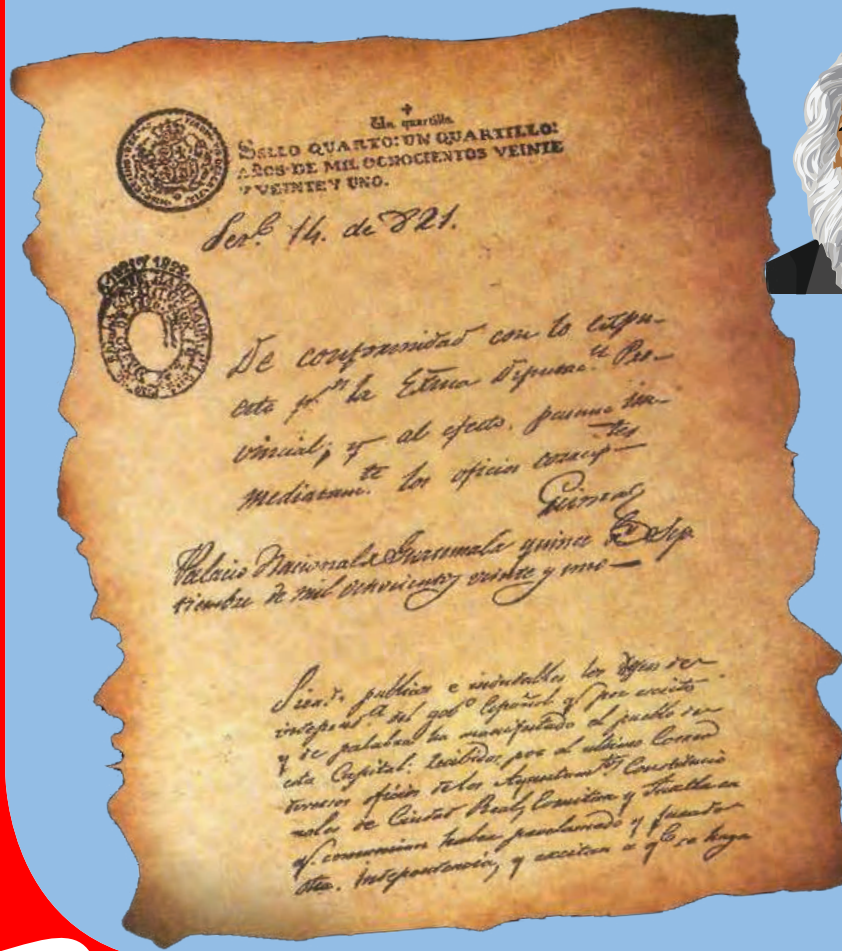 Un quartillo
SELLO QUARTO: UN QUARTILLO:
AÑOS DE MIL OCHOCIENTOS VEINTE
Y VEINTE Y UNO.
14. de 821.
De conformidad con lo
la Exma Diputac.n Pro-
vincial; y al efecto.
mediatam.te los oficios
Palacio Nacional de Guatemala quince de Sep-
tiembre de mil ochocientos veinte y uno —
Siend.o publicos e indudables los
independ.a del gob.o Español q. por escrito
y de palabra ha manifestado el pueblo de
esta Capital: recibidos por el ultimo Correo
diversos oficios de los Ayuntam.tos Constitucio
nales de Ciudad Real, Comitan y Tuxtla en
q. comunican haber proclamado y jurado
dha. independencia, y excitan a q.e se haga